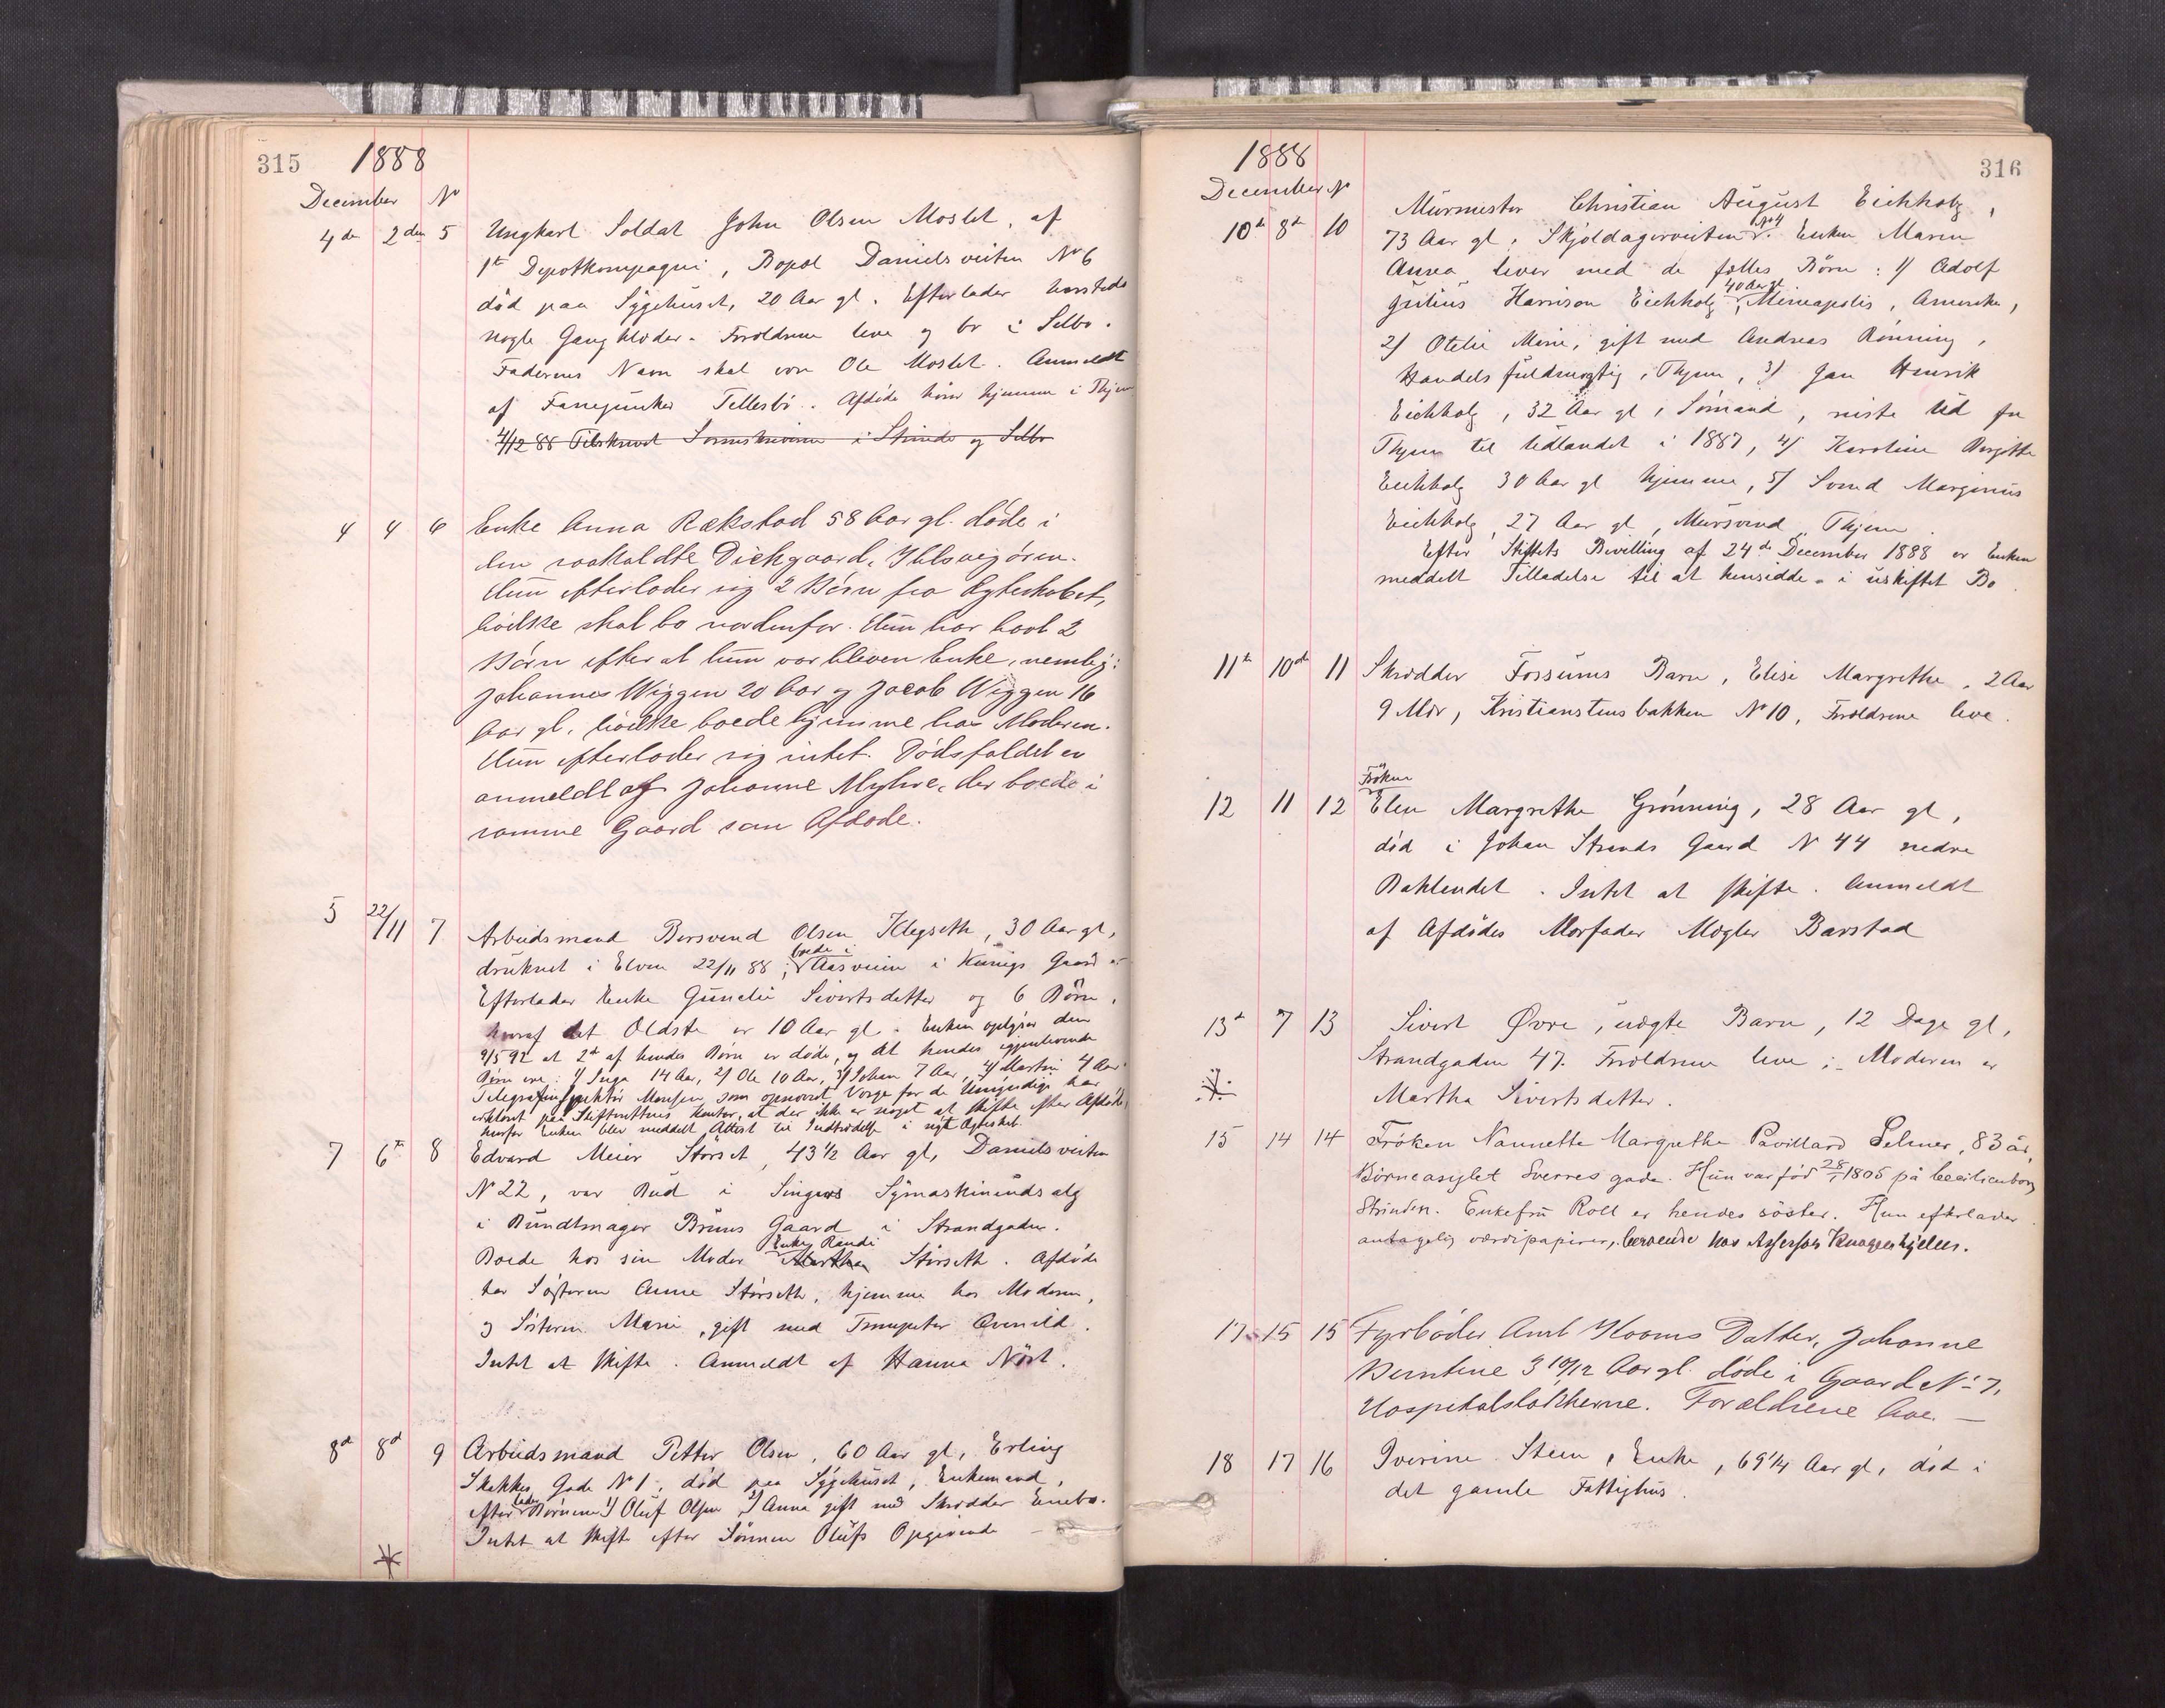 315 1888
December No
4de 2den 5 Ungkarl Soldat John Olsen Moslet, af
1te Depotkompagni, Bopæl Danielsveiten No 6
död paa Sygehuset, 20 Aar gl. Efterlader
nogle Gangklæder. Forældrene leve og bo i Selbo.
Faderens Navn skal være Ole Moslet. Anmeldt
af Fanejunker Tellesbö. Afdöde hörer hjemme i Thjem
4/12 88 Tilskrevet Sorenskriveren i Strinde og Selbo
4 4 6 Enke Anna Rækstad 58 Aar gl. döde i
den saakaldte Diekgaard, Ihlsvigören.
Hun efterlader sig 2 Börn fra Egteskabet,
hvilke skal bo nordenfor. Hun har havt 2
Börn efter at hun var bleven Enke, nemlig:
Johannes Wiggen 20 Aar og Jacob Wiggen 16
Aar gl. hvilke boede hjemme hos Moderen.
Hun efterlader sig intet. Dödsfaldet er
anmeldt af Johanne Myhre, der boede i
samme Gaard som Afdøde.
5 22/11 7 Arbeidsmand Bersvend Olsen Klegseth, 30 Aar gl,
druknet i Elven 22/11 88, boede i Aasveien i Kunigs Gaard
Efterlader Enke Gunelie Sivertsdatter og 6 Börn,
hvoraf det Ældste er 10 Aar gl. Enken oplyser den
9/5 92 at 2de af hendes Börn er döde, og at hendes igjenlevende
Börn ere: 1/ Inga 14 Aar, 2/ Ole 10 Aar, 3/ Johan 7 Aar, 4/ Martin 4 Aar
Telegrafinspektör Monsen, som opnævnt Verge for de Umyndige har
erklæret paa Skifterettens Kontor, at der ikke er noget at skifte efter Afdöde,
hvorfor Enken blev meddelt Attest til Indtrædelse i nyt Ægteskab.
7 6te 8 Edvard Meier Störset, 43 1/2 Aar gl, Danielsveiten
N 22, var Bud i Singers Symaskinudsalg
i Bundtmager Bruns Gaard i Strandgaden.
Boede hos sin Moder Marthea Enke Randi Störseth. Afdöde
har Søsteren Anne Störseth, hjemme hos Moderen,
og Søsteren Marie, gift med Trompeter Arnild.
Intet at skifte. Anmeldt af Hanna Nöst.
8d 8d 9 Arbeidsmand Petter Olsen, 60 Aar gl, Erling
Skakkes Gade No 1, död paa Sygehuset, Enkemand,
efterlader Börnene 1/ Oluf Olsen 2/ Anna gift med Skrædder Enebo.
Intet at skifte efter Sønnen Olufs Opgivende
1888 316
December No
10de 8de 10 Murmester Christian August Eichholz,
73 Aar gl, Skjoldagerveiten No 4. Enken Maren
Annea lever med de fælles Börn: 1/ Adolf
Julius Harrison Eichholz, 40 Aar gl, Mineapolis, Amerika,
2/ Otelie Marie, gift med Andreas Rønning,
Handelsfuldmægtig, Thjem, 3/ Jan Henrik
Eichholz, 32 Aar gl, Sömand, reiste ud fra
Thjem til Udlandet i 1887, 4/ Karoline Birgitte
Eichholz 30 Aar gl hjemme, 5/ Svend Marginius
Eichholz, 27 Aar gl, Mursvend, Thjem.
Efter Stiftets Bevilling af 24de December 1888 er Enken
meddelt Tilladelse til at hensidde i uskiftet Bo.
11te 10de 11 Skrædder Fossums Barn, Elise Margrethe, 2 Aar
9 Mdr, Kristianstensbakken No 10, Forældrene leve.
12 11 12 Fröken Elen Margrethe Grønning, 28 Aar gl,
död i Johan Strands Gaard N 44 nedre
Baklandet. Intet at skifte. Anmeldt
af Afdödes Morfader Mægler Barstad
13d 7 13 Sivert Øvre, uægte Barn, 12 Dage gl,
Strandgaden 47. Forældrene leve; Moderen er
Martha Sivertsdatter.
15 14 14 Fröken Nannette Margrethe Pavillard Selmer, 83 år,
Börneasylet Sverres gade. Hun var född 28/1 1805 på Cecilienborg
Strinden. Enkefru Roll er hendes söster. Hun efterlader
antagelig værdipapirer, beroende hos Assessor Knagenhjelm.
17 15 15 Fyrbøder Amt Mooms Datter, Johanne
Berntine 3 10/12 Aar gl. döde i Gaard No 7,
Hospitalsløkkerne. Forældrene leve. —
18 17 16 Iverine Steen, Enke, 69 1/4 Aar gl, död i
det gamle Fattighus.